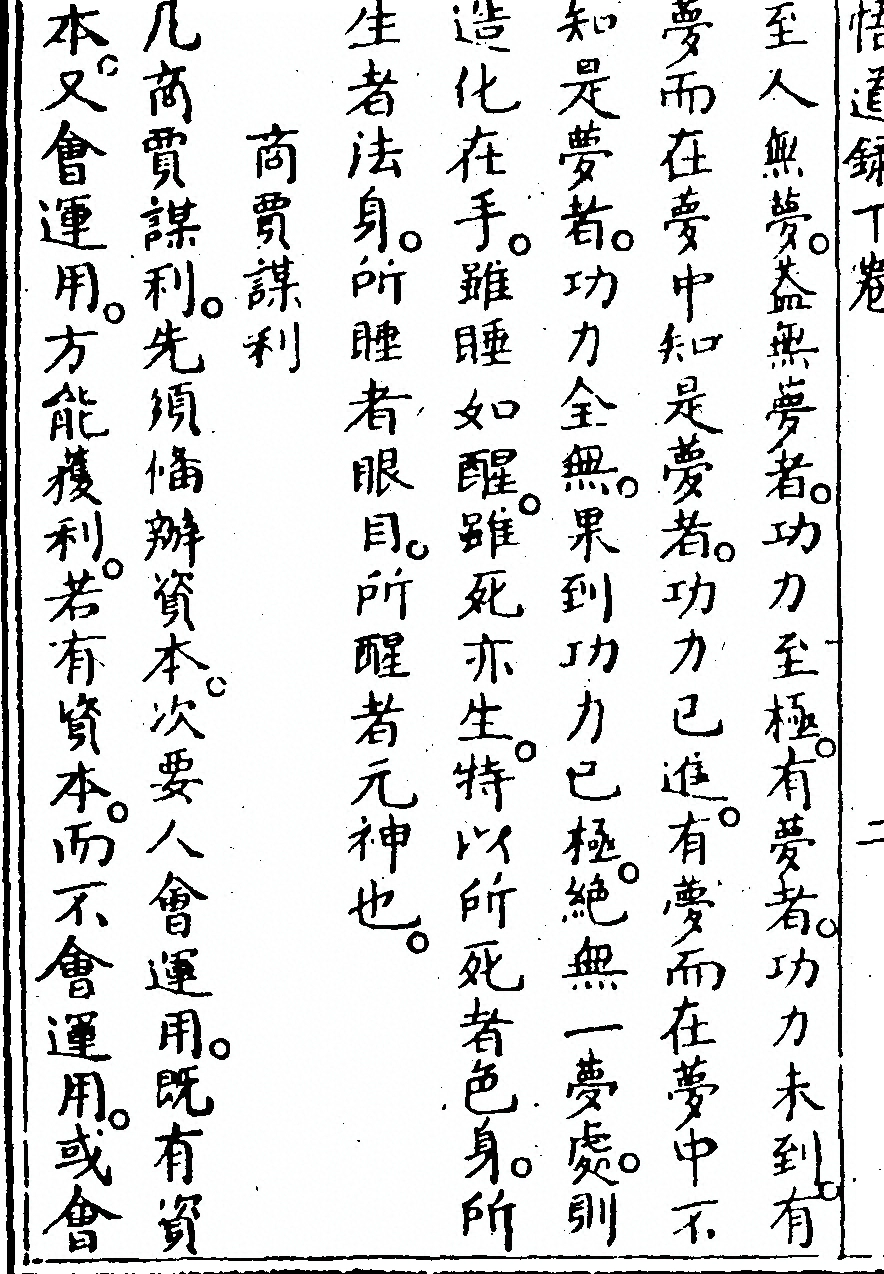 悟道錄下卷 二
至人無夢。蓋無夢者。功力至極。有夢者。功力未到。有
夢而在夢中知是夢者。功力已進。有夢而在夢中不
知是夢者。功力全無。果到功力已極。絕無一夢處。則
造化在手。雖睡如醒。雖死亦生。特以所死者色身。所
生者法身。所睡者眼目。所醒者元神也。
商賈謀利
凡商賈謀利。先須俻辦資本。次要人會運用。既有資
本。又會運用。方能獲利。若有資本。而不會運用。或會